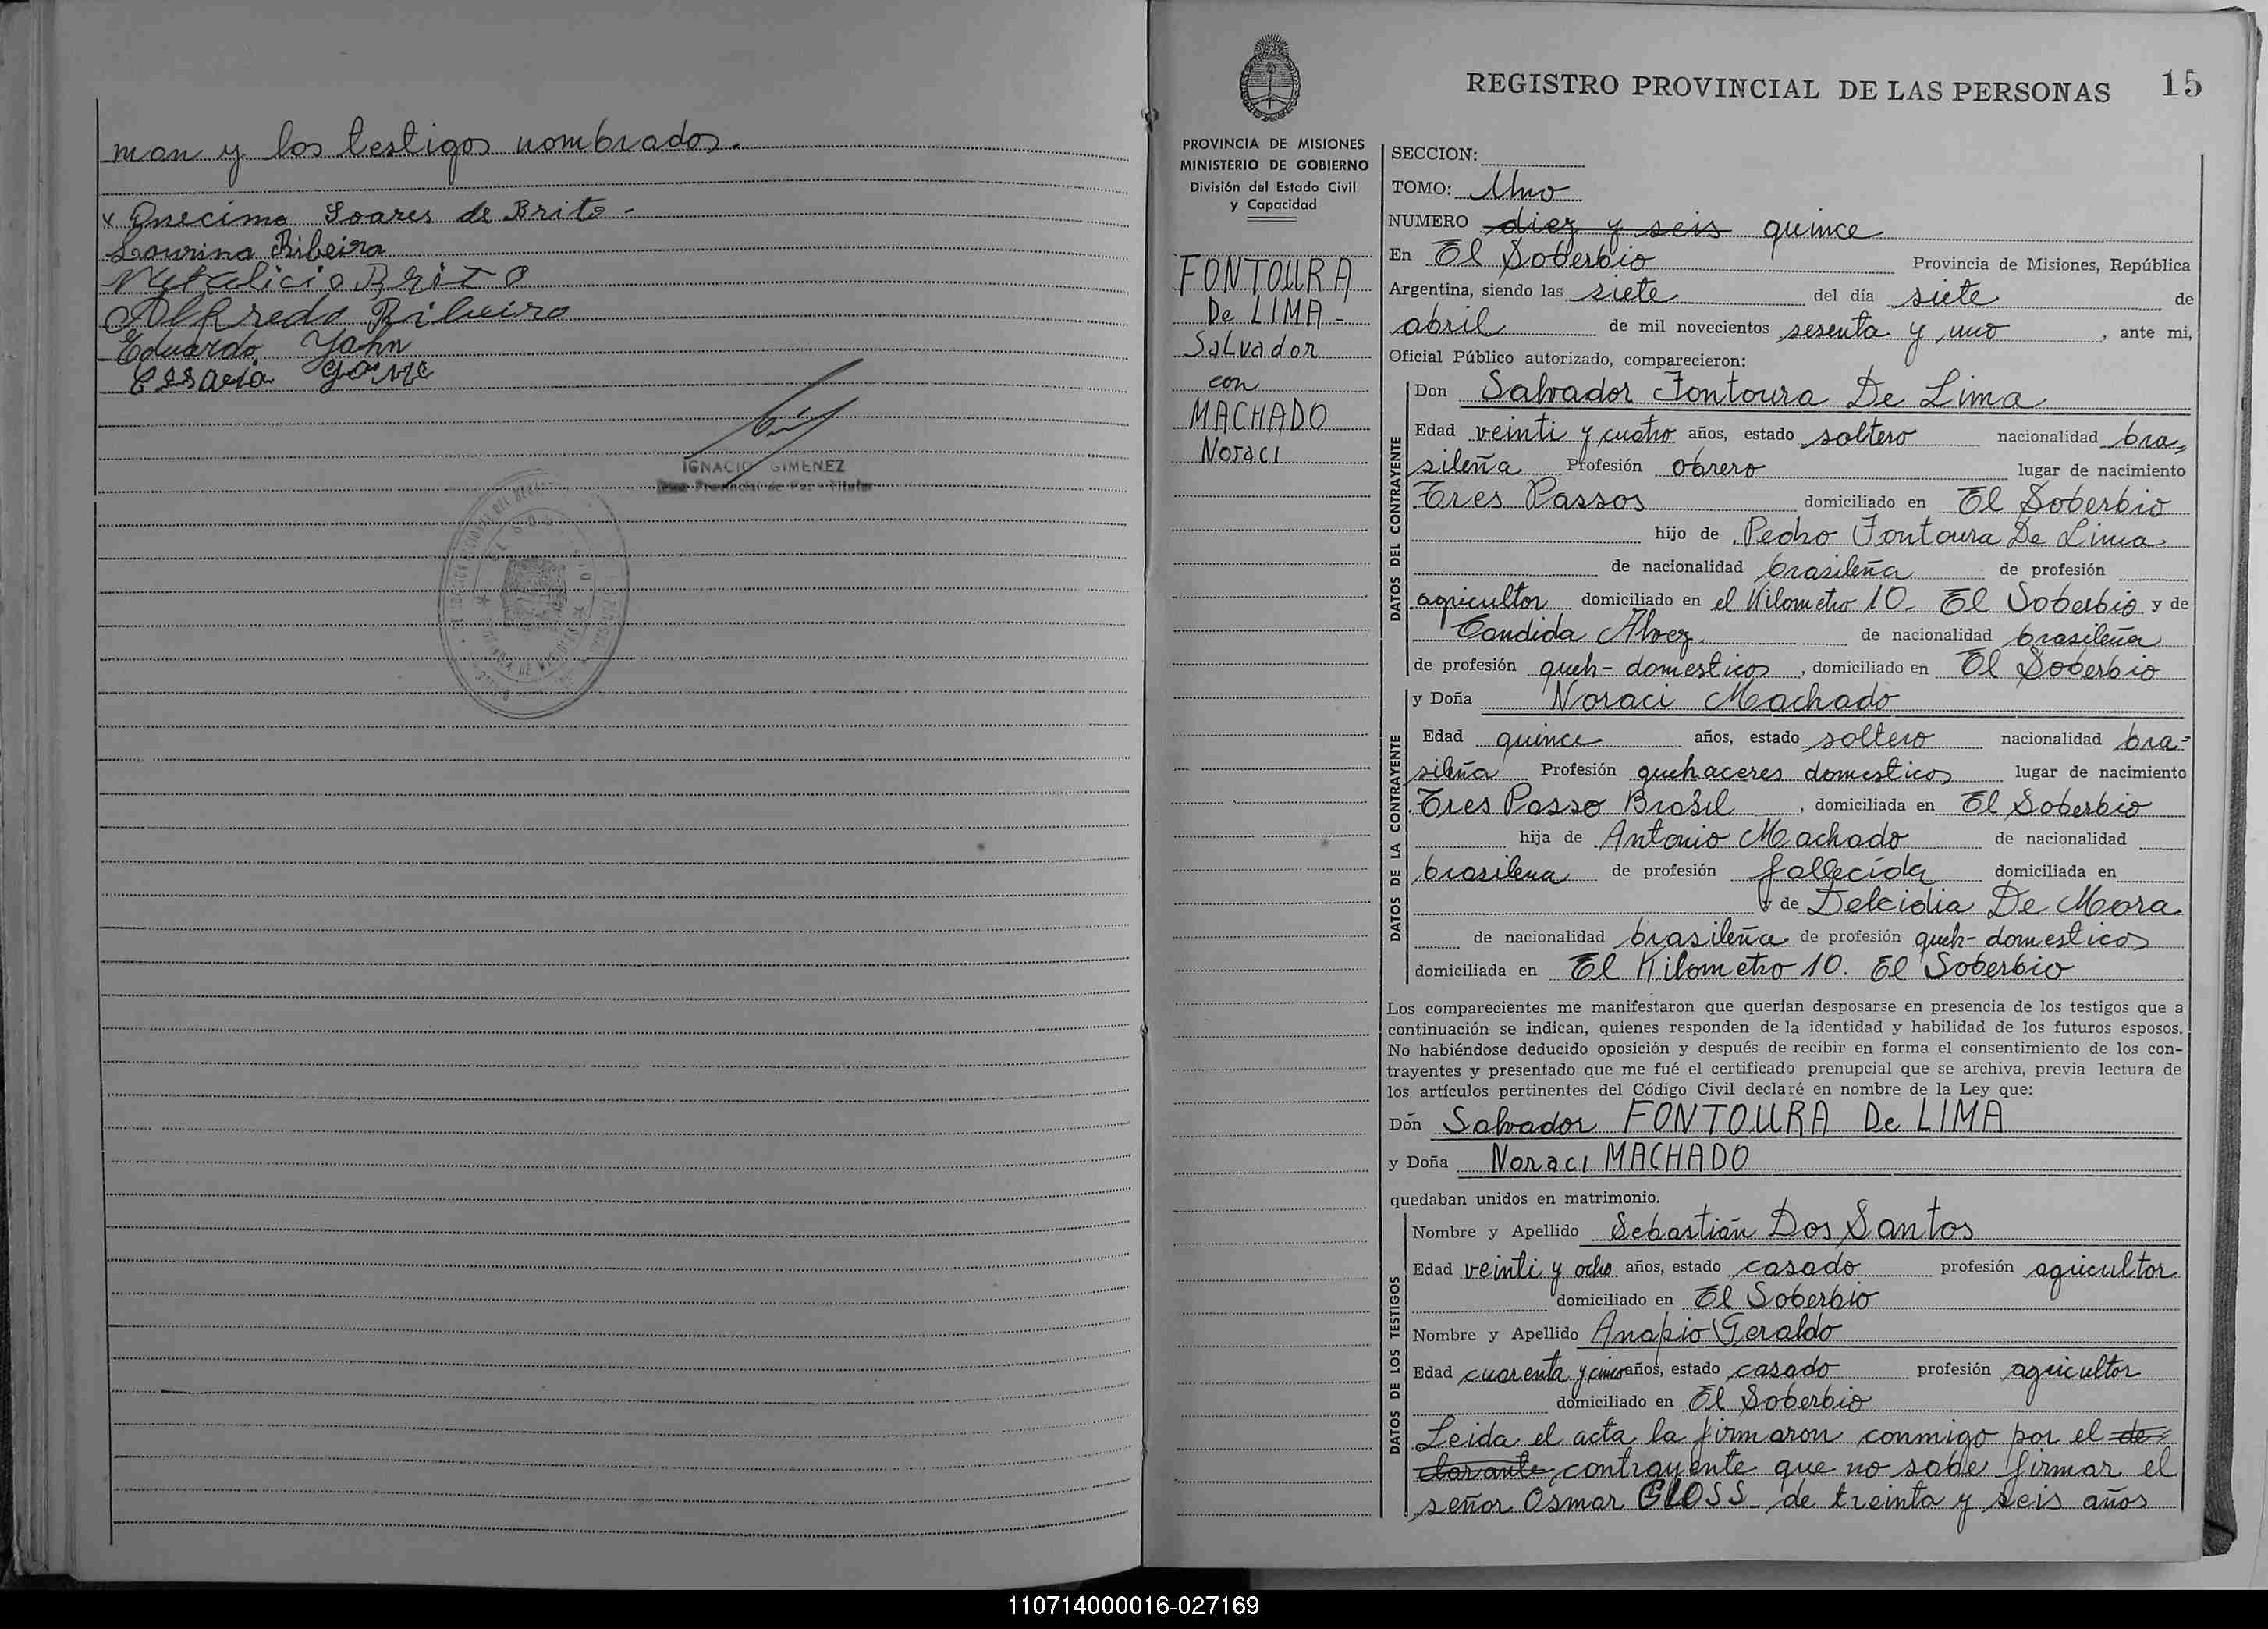 man y los testigos nombrados.
x Onecimo Soares de Brito -
Lourina Ribeira
Natalicio Brito
Alfredo Ribeiro
Eduardo Yahn
IGNACIO GIMENEZ
Provincial de Paz - Titular
REGISTRO PROVINCIAL DE LAS PERSONAS 15
PROVINCIA DE MISIONES
MINISTERIO DE GOBIERNO
División del Estado Civil
y Capacidad
FONTOURA
De LIMA -
Salvador
con
MACHADO
Noraci
SECCION:
TOMO: Uno
NUMERO diez y seis quince
En El Soberbio Provincia de Misiones, República
Argentina, siendo las siete del día siete de
abril de mil novecientos sesenta y uno, ante mi,
Oficial Público autorizado, comparecieron:
DATOS DEL CONTRAYENTE
Don Salvador Fontoura De Lima
Edad veinti y cuatro años, estado soltero nacionalidad bra-
sileña Profesión obrero lugar de nacimiento
Tres Passos domiciliado en El Soberbio
hijo de Pedro Fontoura De Lima
de nacionalidad brasileña de profesión
agricultor domiciliado en el Kilometro 10. El Soberbio y de
Candida Alvez. de nacionalidad brasileña
de profesión queh- domesticos, domiciliado en El Soberbio
DATOS DE LA CONTRAYENTE
y Doña Noraci Machado
Edad quince años, estado soltero nacionalidad bra-
sileña Profesión quehaceres domesticos lugar de nacimiento
Tres Passo Brasil, domiciliada en El Soberbio
hija de Antonio Machado de nacionalidad
brasilena de profesión fallecida domiciliada en
y de Delcidia De Mora
de nacionalidad brasileña de profesión queh- domesticos
domiciliada en El Kilometro 10. El Soberbio
Los comparecientes me manifestaron que querían desposarse en presencia de los testigos que a
continuación se indican, quienes responden de la identidad y habilidad de los futuros esposos.
No habiéndose deducido oposición y después de recibir en forma el consentimiento de los con-
trayentes y presentado que me fué el certificado prenupcial que se archiva, previa lectura de
los artículos pertinentes del Código Civil declaré en nombre de la Ley que:
Don Salvador FONTOURA De LIMA
y Doña Noraci MACHADO
quedaban unidos en matrimonio.
DATOS DE LOS TESTIGOS
Nombre y Apellido Sebastián Dos Santos
Edad veinti y ocho años, estado casado profesión agricultor
domiciliado en El Soberbio
Nombre y Apellido Anapio Geraldo
Edad cuarenta y cinco años, estado casado profesión agricultor
domiciliado en El Soberbio
Leida el acta la firmaron conmigo por el de-
clarante contrayente que no sabe firmar el
señor Osmar GLOSS de treinta y seis años
110714000016-027169